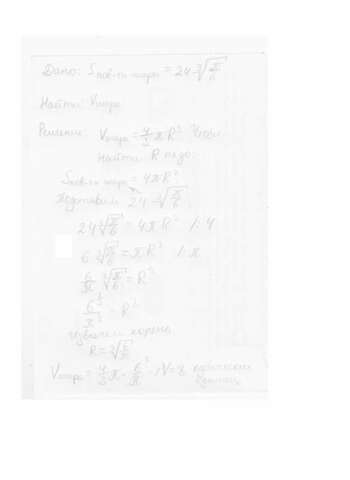 Дано: S пов-ти шара = 24 ∛(π/6)
Найти: Vшара
Решение: Vшара = 4/3 πR³ Чтобы
найти R надо:
Sпов-ти шара = 4πR²
Подставим 24 ∛(π/6)
24 ∛(π/6) = 4πR² /:4
6 ∛(π/6) = πR² /:π
6/π ∛(π/6) = R²
= R²
извлечем корень
R = ∛(6/π)
Vшара = 4/3 π · 6/π ; V = 8 кубических
единиц